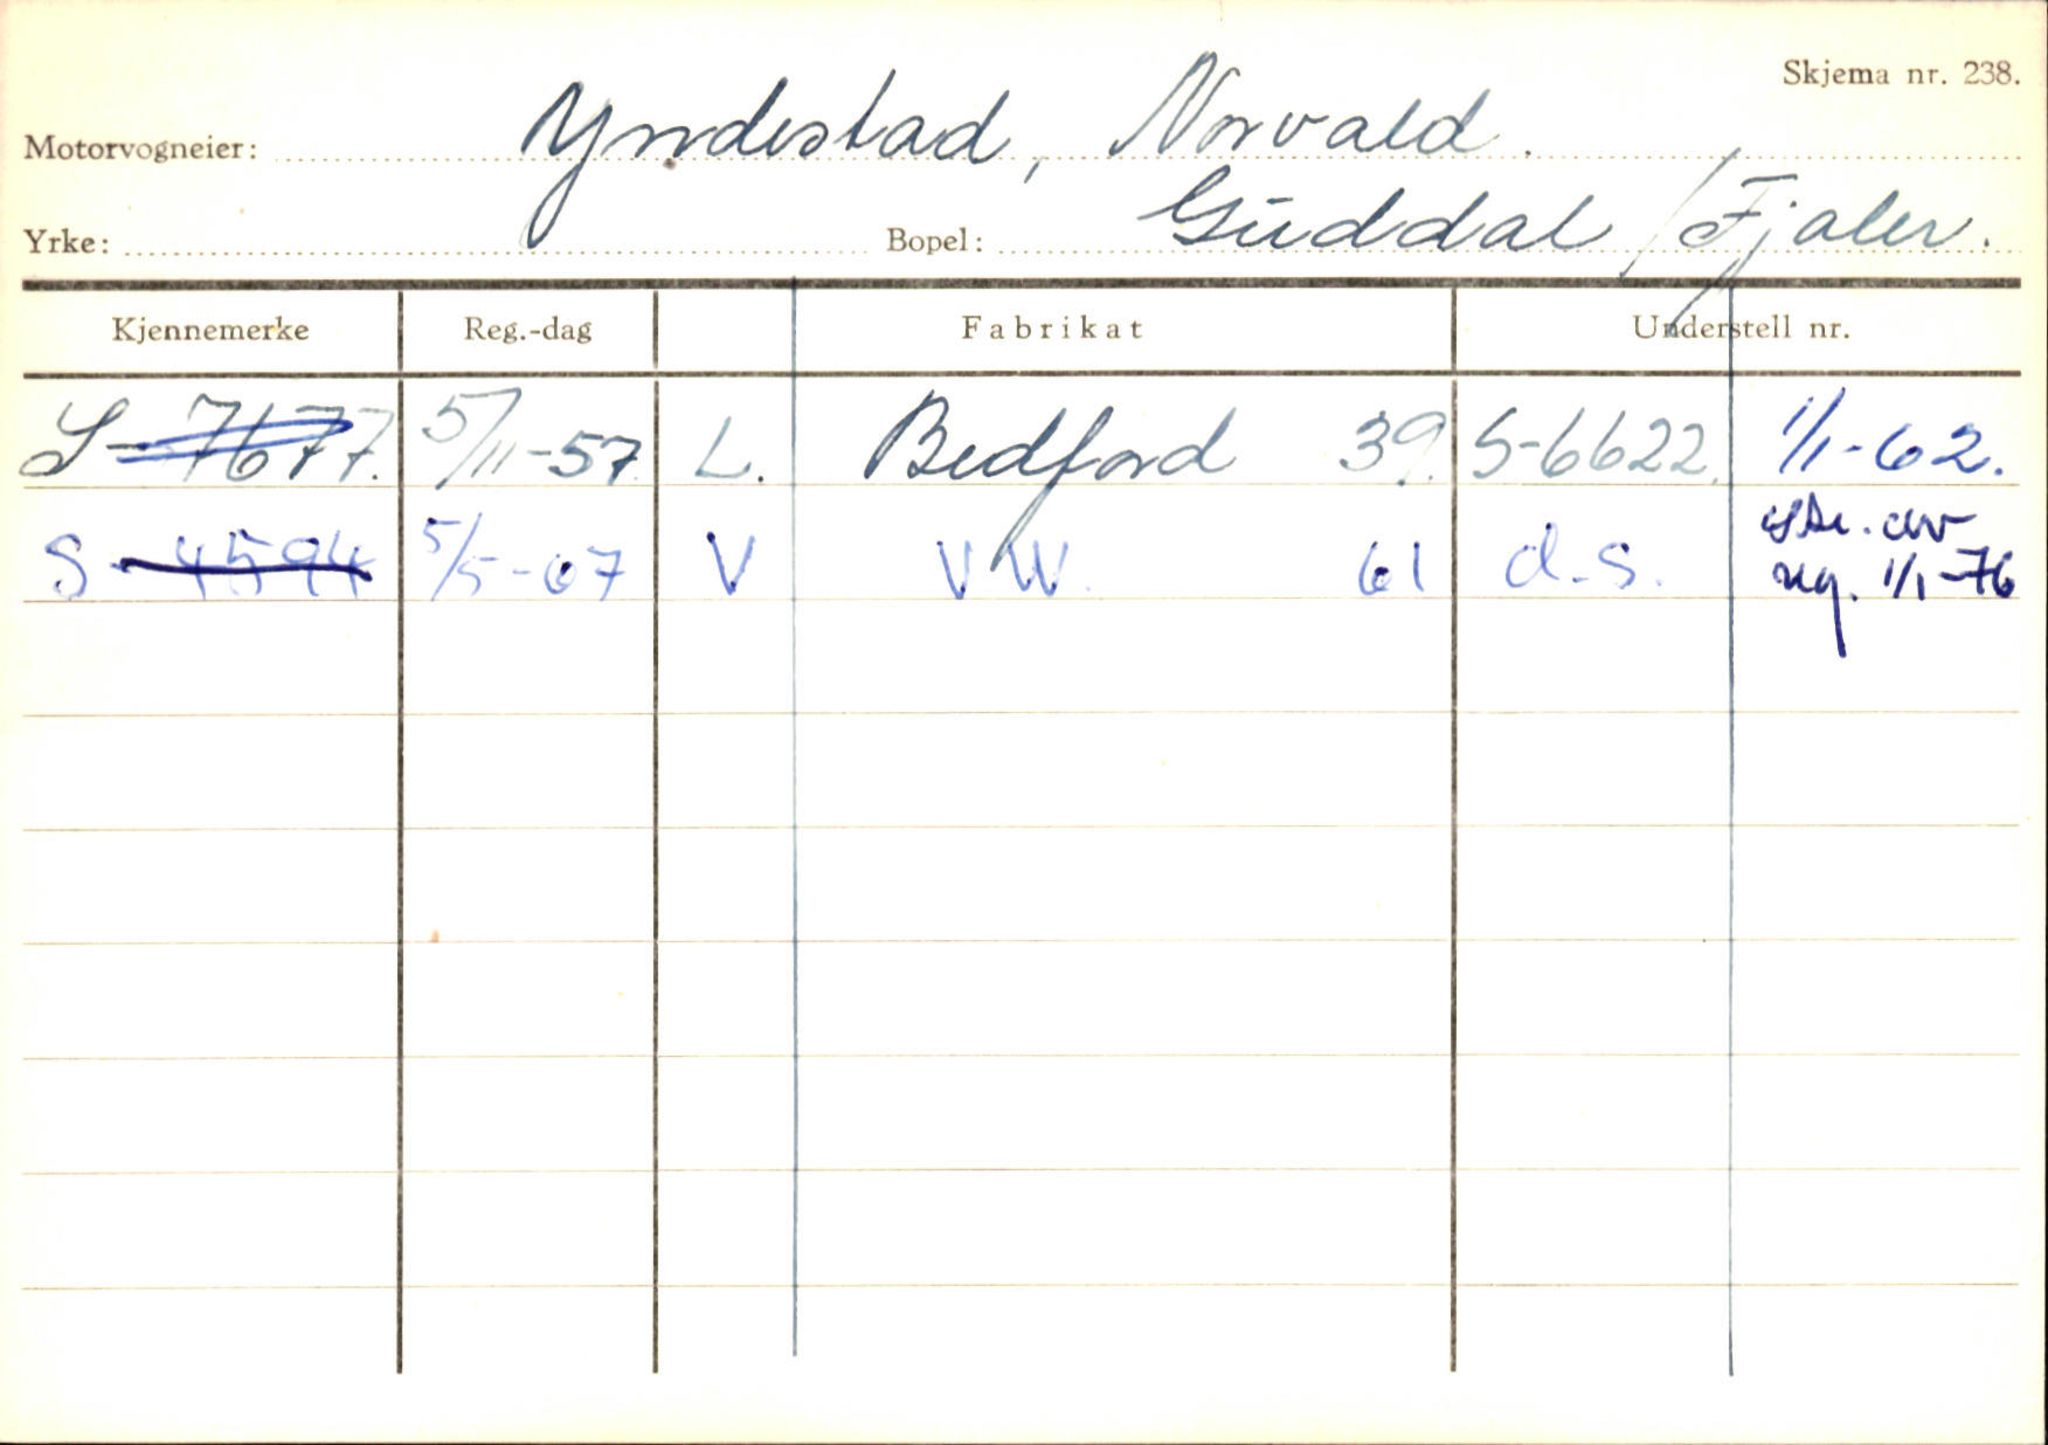 Skjema nr. 238.
Motorvogneier: Yndestad, Norvald.
Yrke: Bopel: Guddal / Fjaler.
Kjennemerke Reg.-dag Fabrikat Understell nr.
S-7677. 5/11-57 L. Bedford 39. S-6622. 1/1-62.
S-4594 5/5-67 V VW. 61 d.s. av
reg. 1/1-76